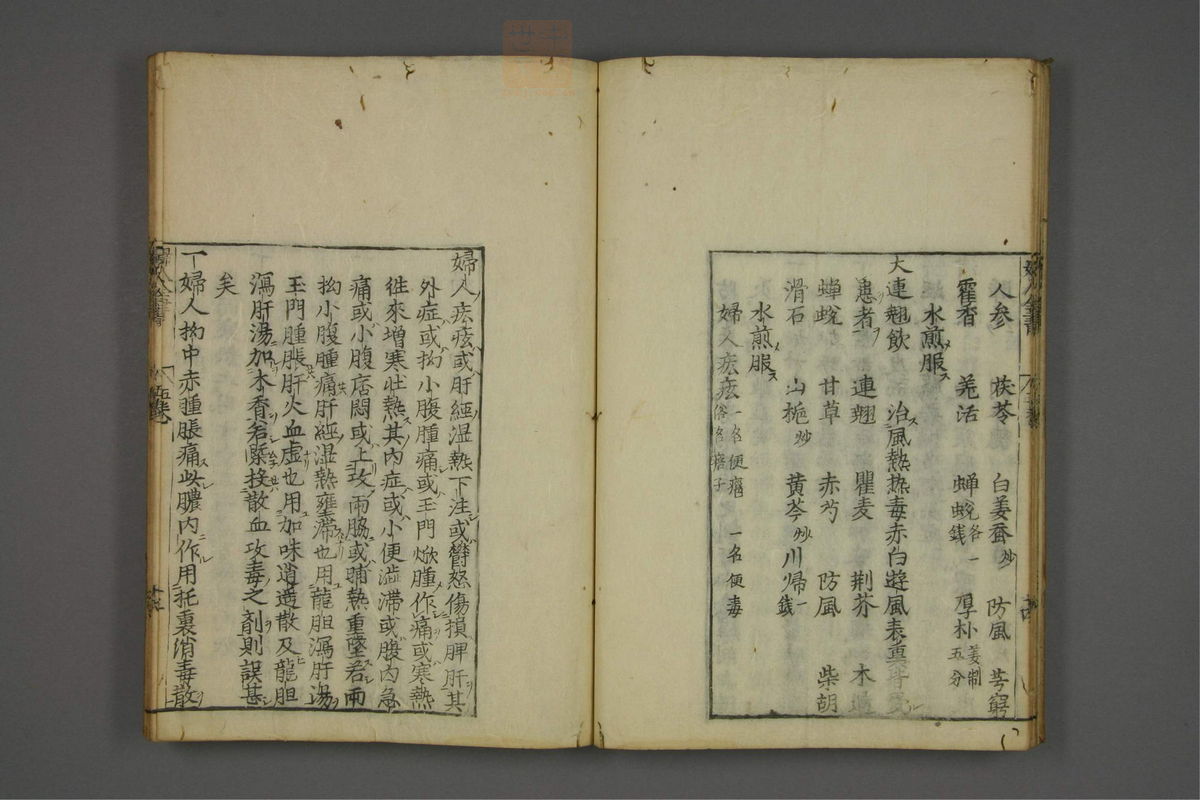 人参 茯苓 白姜蚕炒 防風 芎窮
霍香 羗活 蝉蛻各一銭 厚朴姜制五分
水煎服ス
大連翹飲 治風熱热毒赤白遊風表裏
患者 連翹 瞿麦 荆芥 木通
蝉蛻 甘草 赤芍 防風 柴胡
滑石 山梔炒 黄芩炒 川帰一銭
水煎服ス
婦人㽱㽿一名便癰 俗名瘡子 一名便毒
婦人㽱㽿或肝經湿熱下注或欝怒傷損脾肝其
外症或拗小腹腫痛或玉門焮腫作痛或寒熱
徃來增寒壮熱其内症或小便澁滞或腹内急
痛或小腹痞悶或上攻兩脇或晡熱重墜若兩
拗小腹腫痛肝經湿熱壅滞也用龍胆瀉肝湯
玉門腫脹肝火血虚也用加味逍遥散及龍胆
瀉肝湯加木香若槩投散血攻毒之剤則誤甚
矣
一婦人拗中赤腫脹痛此膿内作用托裏消毒散